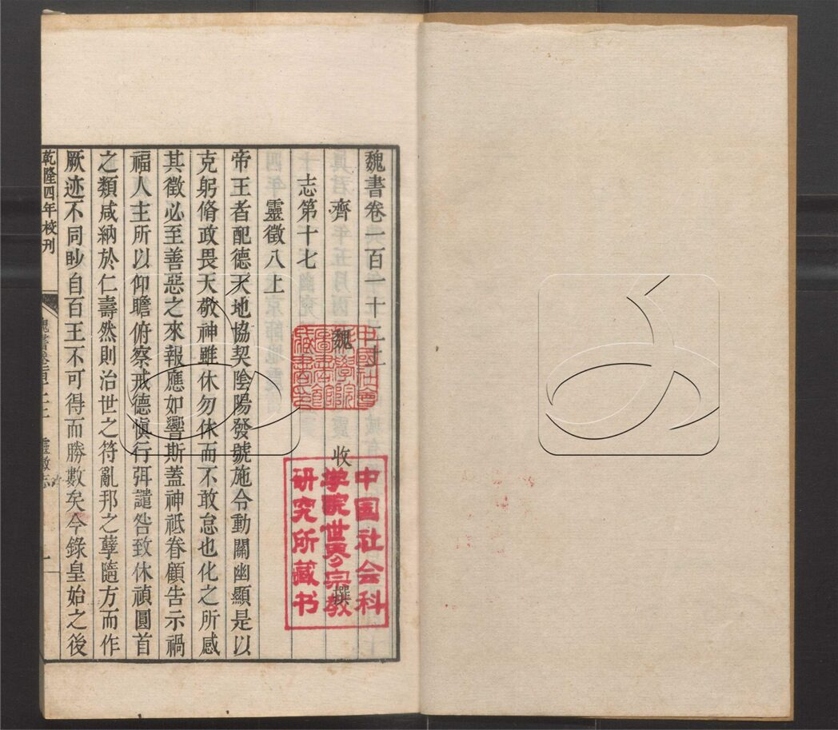 魏書卷一百一十二上
齊 魏 收 撰
志第十七
靈徵八上
帝王者配德天地協契陰陽發號施令動關幽顯是以
克躬脩政畏天敬神雖休勿休而不敢怠也化之所感
其徵必至善惡之來報應如響斯蓋神祗眷顧告示禍
福人主所以仰瞻俯察戒德愼行弭譴咎致休禎圓首
之類咸納於仁壽然則治世之符亂邦之孽隨方而作
厥迹不同眇自百王不可得而勝數矣今錄皇始之後
乾隆四年校刊
中國社會
科學院
圖書館
藏書之
中国社会科
学院世界宗教
研究所藏书